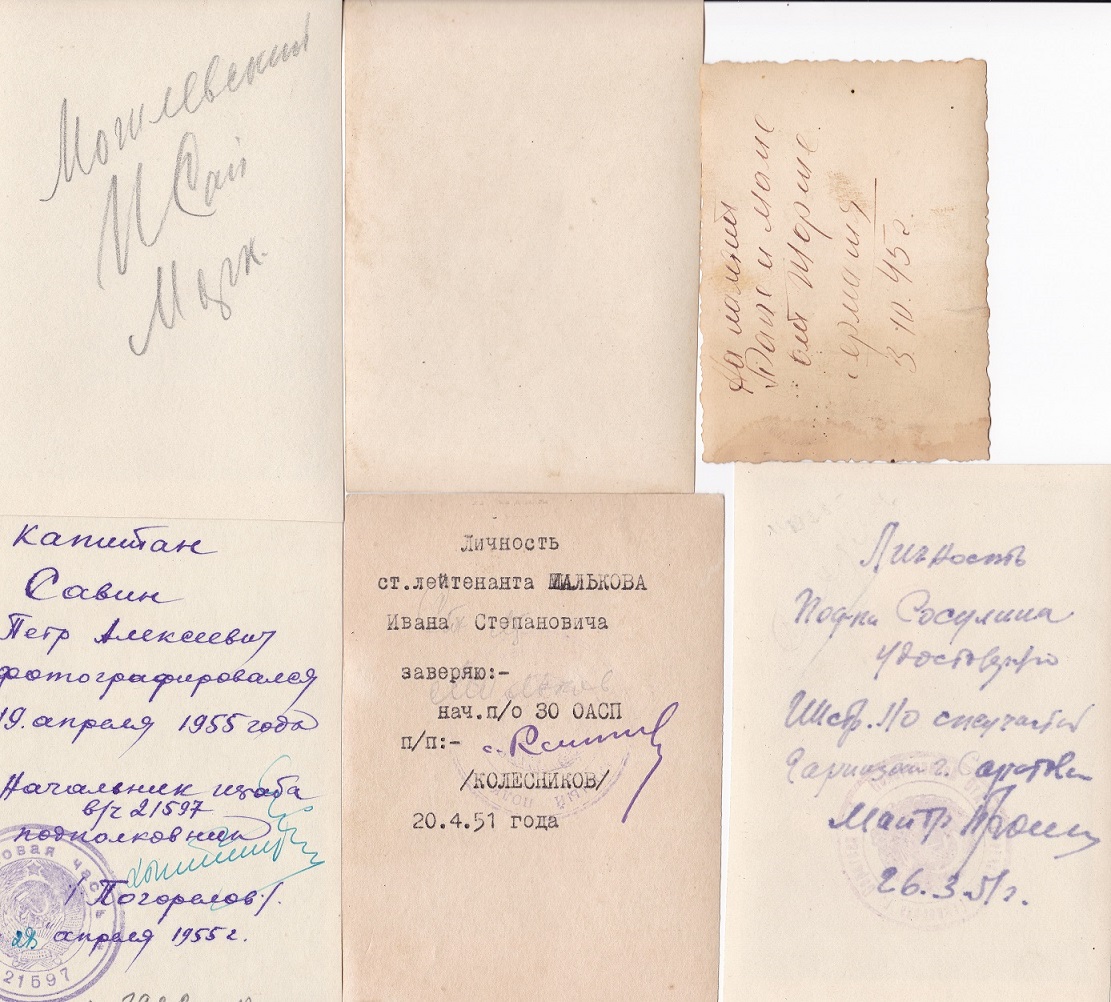 Могилевский
И Сай
На память
Папе и маме
от Шерие
Германия
3.10.45 г.
Капитан
Савин
Петр Алексеевич
фотографировался
19. апреля 1955 года
Начальник штаба
в/ч 21597
подполковник
/Погорелов/.
28 апреля 1955 г.
овая час
21597
Личность
ст.лейтенанта ШАЛЬКОВА
Ивана Степановича
заверяю:-
нач.п/о 30 ОАСП
п/п:-
/КОЛЕСНИКОВ/
20.4.51 года
Личность
Подп-ка Сосулина
удостоверяю
Инстр. по спецчасти
Гарнизон г. Саратова
26.3.51г.